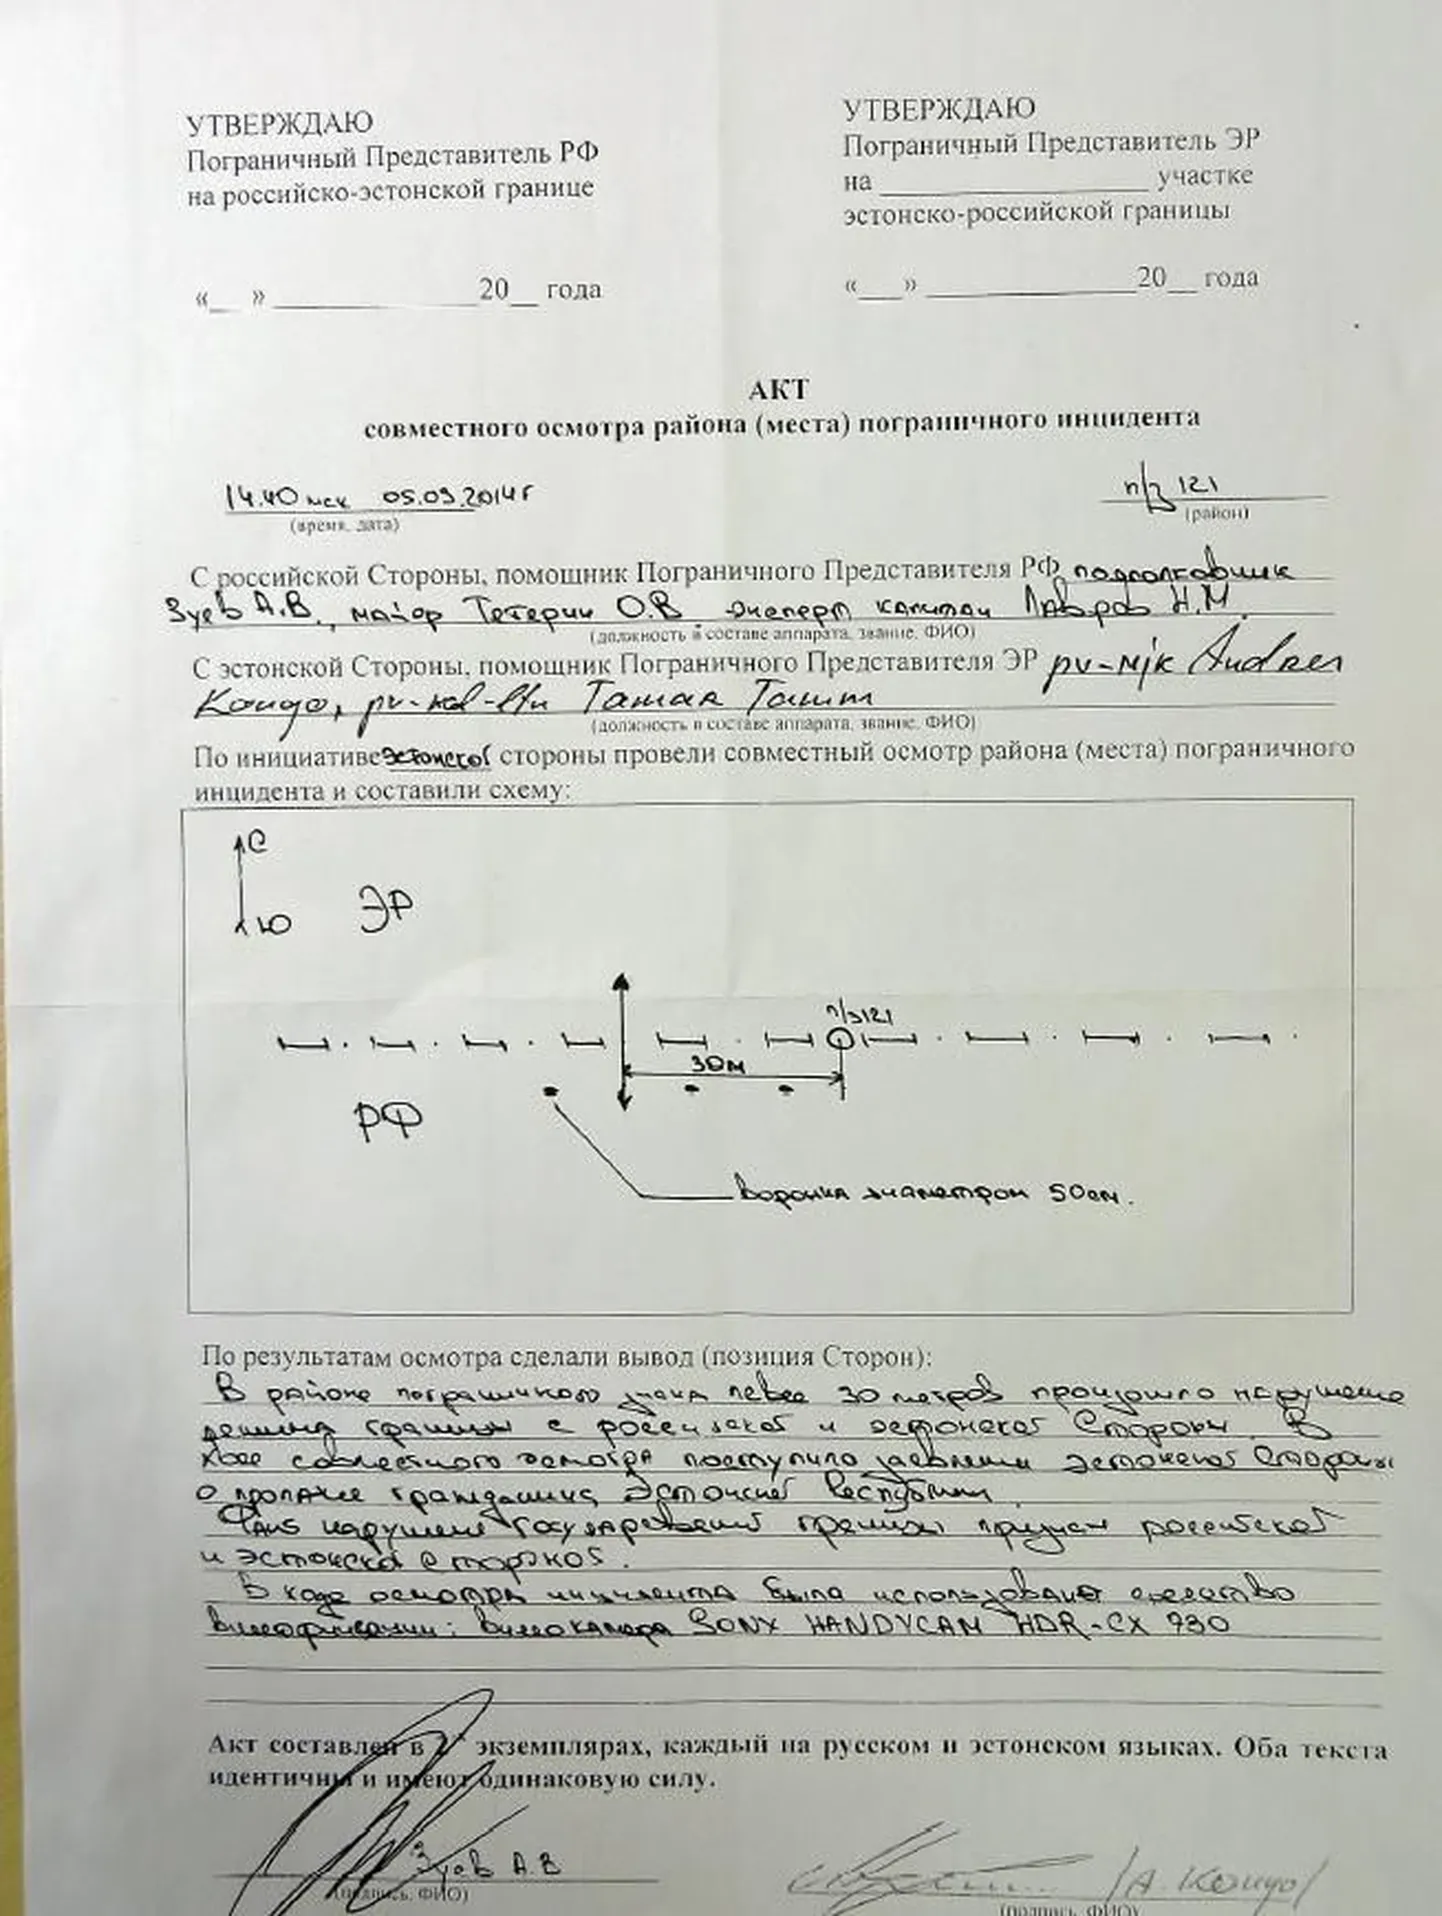 УТВЕРЖДАЮ
Пограничный Представитель РФ
на российско-эстонской границе
«__ » ____________20__ года
УТВЕРЖДАЮ
Пограничный Представитель ЭР
на ________________ участке
эстонско-российской границы
«___» ____________20__ года
АКТ
совместного осмотра района (места) пограничного инцидента
14.40 мск 05.09.2014г
(время, дата)
п/з 121
(район)
С российской Стороны, помощник Пограничного Представителя РФ подполковник
Зуев А.В., майор Тетерин О.В. эксперт капитан Лавров Н.М.
(должность в составе аппарата, звание, ФИО)
С эстонской Стороны, помощник Пограничного Представителя ЭР pv-mjr Andres
Kongo, pv-kol-ltn Tamar Tamm
(должность в составе аппарата, звание, ФИО)
По инициативе эстонской стороны провели совместный осмотр района (места) пограничного
инцидента и составили схему:
С
Ю
ЭР
п/з121
30м
РФ
воронка диаметром 50см.
По результатам осмотра сделали вывод (позиция Сторон):
В районе пограничного знака левее 30 метров произошло нарушение
линии границы с российской и эстонской Стороны. В
ходе совместного осмотра поступило заявление эстонской Стороны
о пропаже гражданина Эстонской Республики.
Факт нарушения государственной границы признан российской
и эстонской стороной.
В ходе осмотра инцидента было использовано средство
видеофиксации: видеокамера SONY HANDYCAM HDR-CX 730
Акт составлен в 2х экземплярах, каждый на русском и эстонском языках. Оба текста
идентичны и имеют одинаковую силу.
Зуев А.В
(подпись, ФИО)
/А. Конго/
(подпись, ФИО)